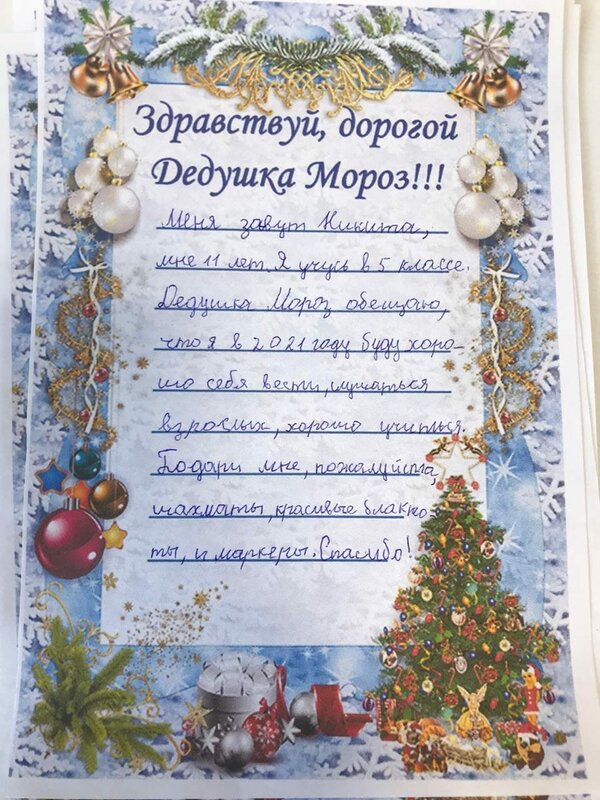 Здравствуй, дорогой
Дедушка Мороз!!!
Меня завут Никита,
мне 11 лет. Я учусь в 5 классе.
Дедушка Мороз обещаю,
что я в 2021 году буду хоро-
шо себя вести, слушаться
взрослых, хорошо учиться.
Подари мне, пожалуйста,
шахматы, красивые блакно-
ты, и маркеры. Спасибо!